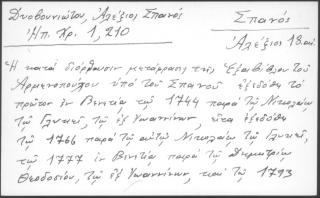 Δυοβουνιώτου, Ἀλέξιος Σπανός
Ἠπ. Χρ. 1, 210
Σπανός
Ἀλέξιος 18 αἰ.
Ἡ κατὰ διόρθωσιν μετάφρασις τῆς Ἑξαβίβλου τοῦ
Ἁρμενοπούλου ὑπὸ τοῦ Σπανοῦ ἐξεδόθη τὸ
πρῶτον ἐν Βενετίᾳ τῷ 1744 παρὰ τῷ Νικολάῳ
τῷ Γλυκεῖ, τῷ ἐξ Ἰωαννίνων, εἶτα ἐξεδόθη
τῷ 1766 παρὰ τῷ αὐτῷ Νικολάῳ τῷ Γλυκεῖ,
τῷ 1777 ἐν Βενετίᾳ παρὰ τῷ Δημητρίῳ
Θεοδοσίου, τῷ ἐξ Ἰωαννίνων, καὶ τῷ 1793